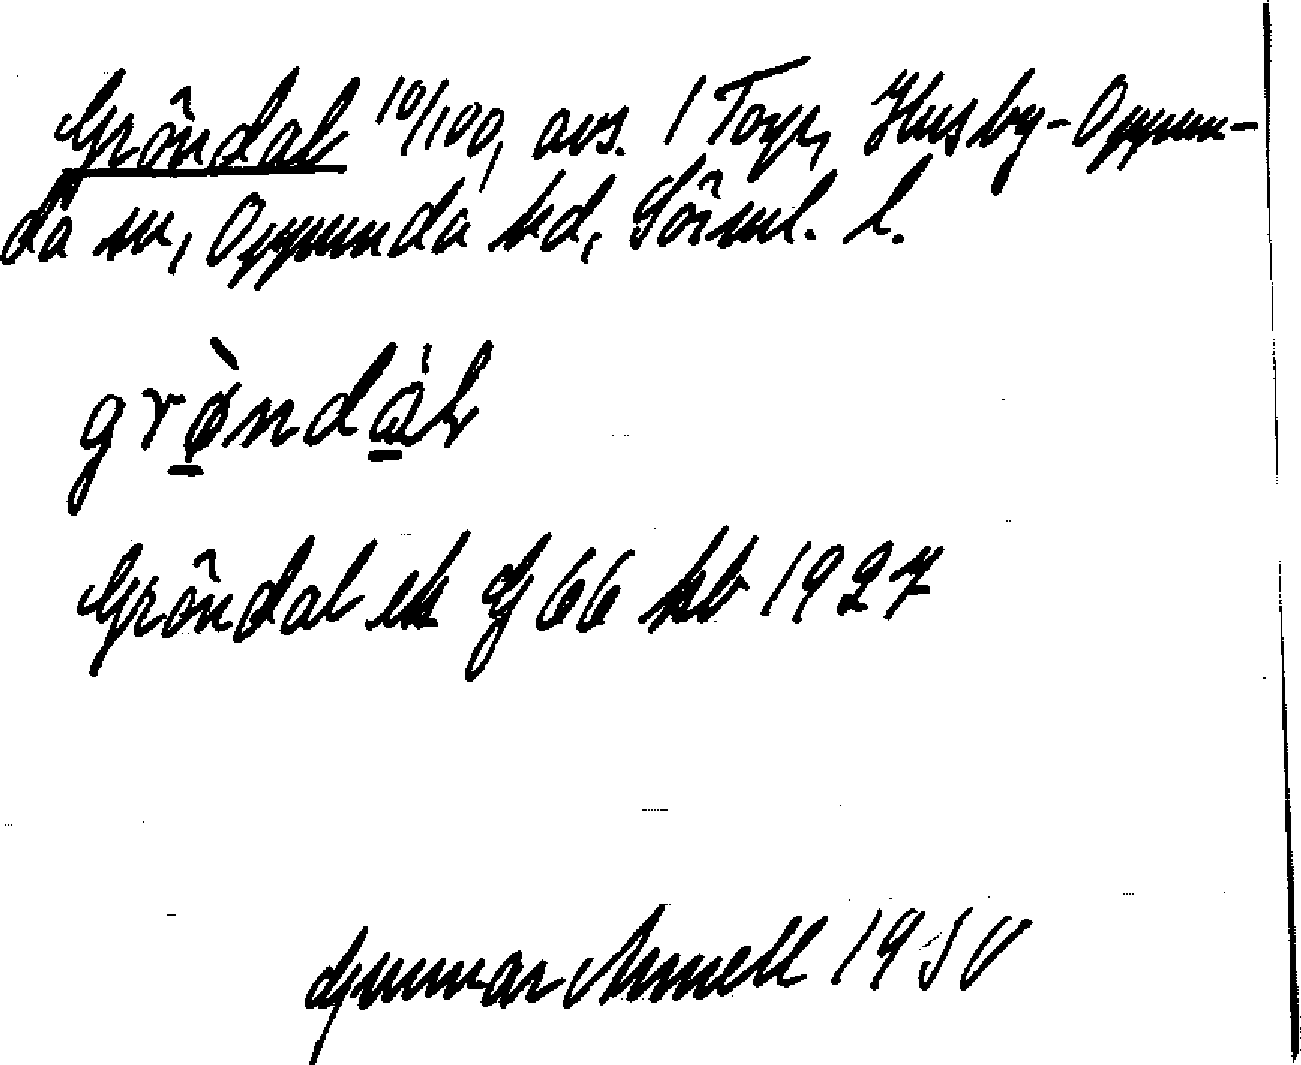 Gröndal 10/100, avs. 1 Torp, Husby-Oppun-
da sn, Oppunda hd, Sörml. l.
grø̀ndàl
Gröndal ek bl 66 kb 1927
Gunnar Amell 1930